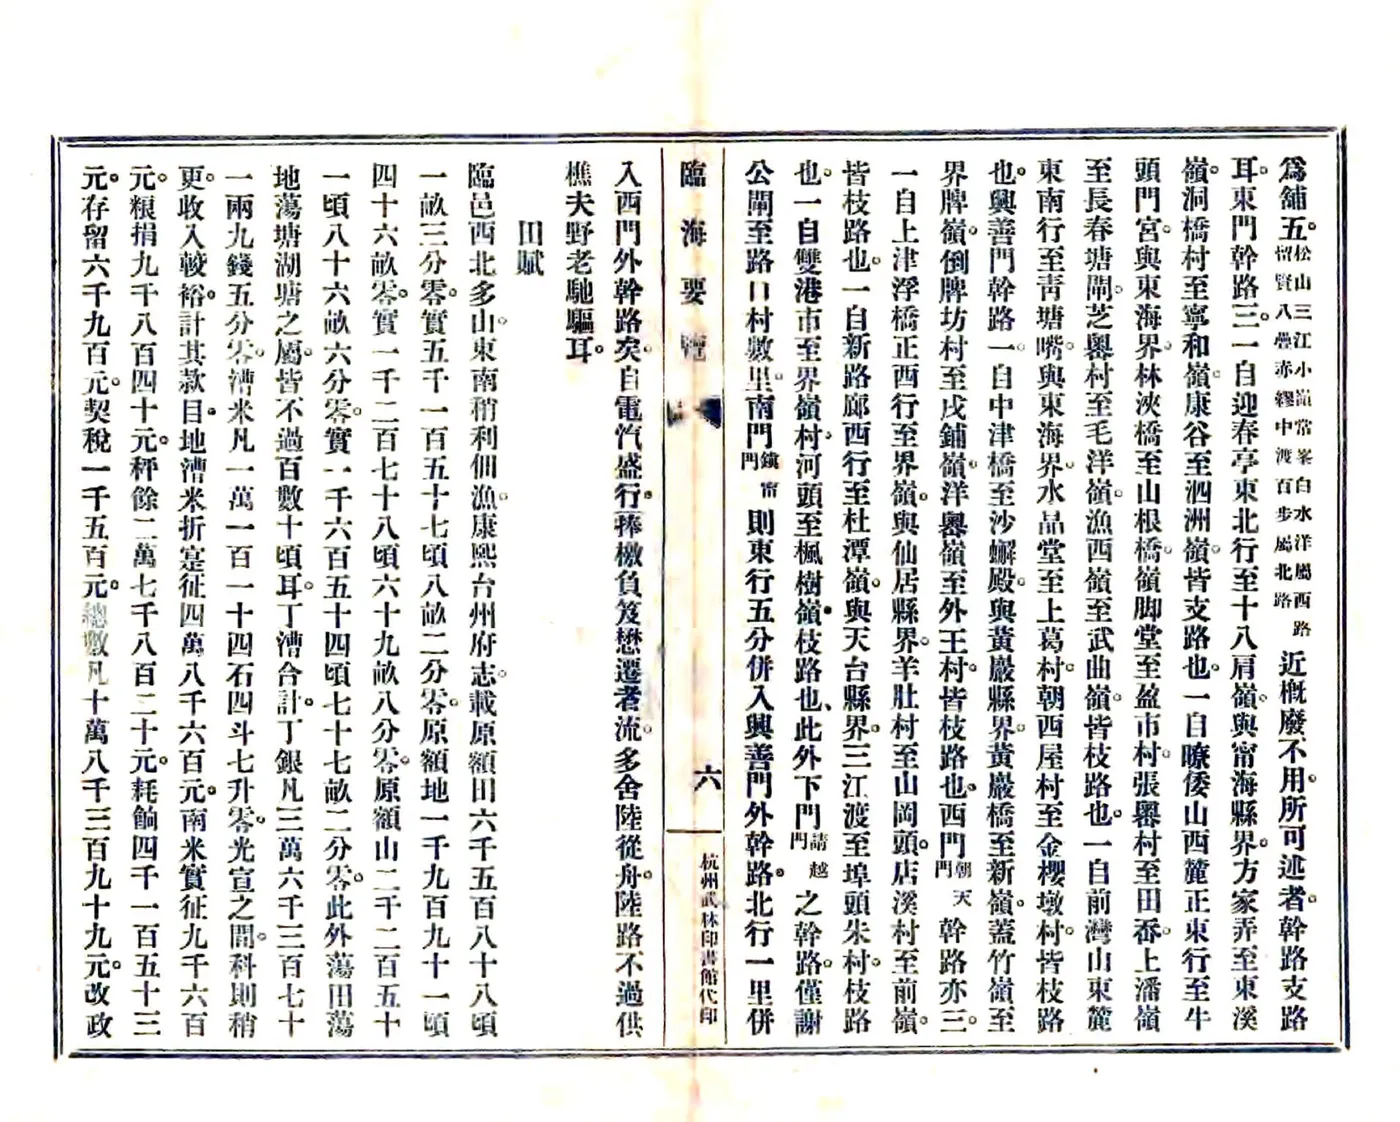 爲舖五。松山三江小嶺常峯白水洋屬西路留賢八疊赤繆中渡百步屬北路近槪廢不用。所可述者。幹路支路
耳。東門幹路三。一自迎春亭東北行至十八肩嶺。與甯海縣界。方家弄至東溪
嶺。洞橋村至寧和嶺。康谷至泗洲嶺。皆支路也。一自暸倭山西麓正東行至牛
頭門宮。與東海界。林浹橋至山根橋。嶺脚堂至盈市村。張嶴村至田岙。上潘嶺
至長春塘閘。芝嶴村至毛洋嶺。漁西嶺至武曲嶺。皆枝路也。一自前灣山東麓
東南行至靑塘嘴。與東海界。水晶堂至上葛村。朝西屋村至金櫻墩村。皆枝路
也。興善門幹路一。自中津橋至沙蠏殿。與黃巖縣界。黃巖橋至新嶺。蓋竹嶺至
界牌嶺。倒牌坊村至戌鋪嶺。洋嶴嶺至外王村。皆枝路也。西門朝天門幹路亦三。
一自上津浮橋正西行至界嶺。與仙居縣界。羊肚村至山岡頭。店溪村至前嶺。
皆枝路也。一自新路廊西行至杜潭嶺。與天台縣界。三江渡至埠頭朱村。枝路
也。一自雙港市至界嶺村。河頭至楓樹嶺。枝路也、此外下門靖越門之幹路。僅謝
公閘至路口村數里。南門鎭甯門則東行五分併入興善門外幹路。北行一里併
臨海要覽
六
杭州武林印書館代印
入西門外幹路矣。自電汽盛行。捧檄負笈懋遷者流。多舍陸從舟。陸路不過供
樵夫野老馳驅耳。
田賦
臨邑西北多山。東南稍利佃漁。康熙台州府志。載原額田六千五百八十八頃
一畝三分零。實五千一百五十七頃八畝二分零。原額地一千九百九十一頃
四十六畝零。實一千二百七十八頃六十九畝八分零。原額山二千二百五十
一頃八十六畝六分零。實一千六百五十四頃七十七畝二分零。此外蕩田蕩
地蕩塘湖塘之屬。皆不過百數十頃耳。丁漕合計。丁銀凡三萬六千三百七十
一兩九錢五分零。漕米凡一萬一百一十四石四斗七升零。光宣之間。科則稍
更。收入較裕。計其款目。地漕米折寔征四萬八千六百元。南米實征九千六百
元。粮捐九千八百四十元。秤餘二萬七千八百二十元。耗餉四千一百五十三
元。存留六千九百元。契稅一千五百元。總數凡十萬八千三百九十九元。改政